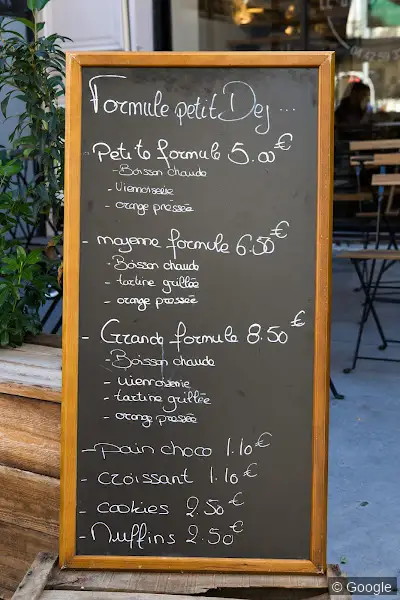 Formule petit Dej ...
- Petite formule 5.00€
- Boisson chaude
- Viennoiserie
- orange pressée
- moyenne formule 6.50€
- Boisson chaude
- tartine grillée
- orange pressée
- Grande formule 8.50€
- Boisson chaude
- viennoiserie
- tartine grillée
- orange pressée
- pain choco 1.10€
- croissant 1.10€
- cookies 2.50€
- Muffins 2.50€
© Google